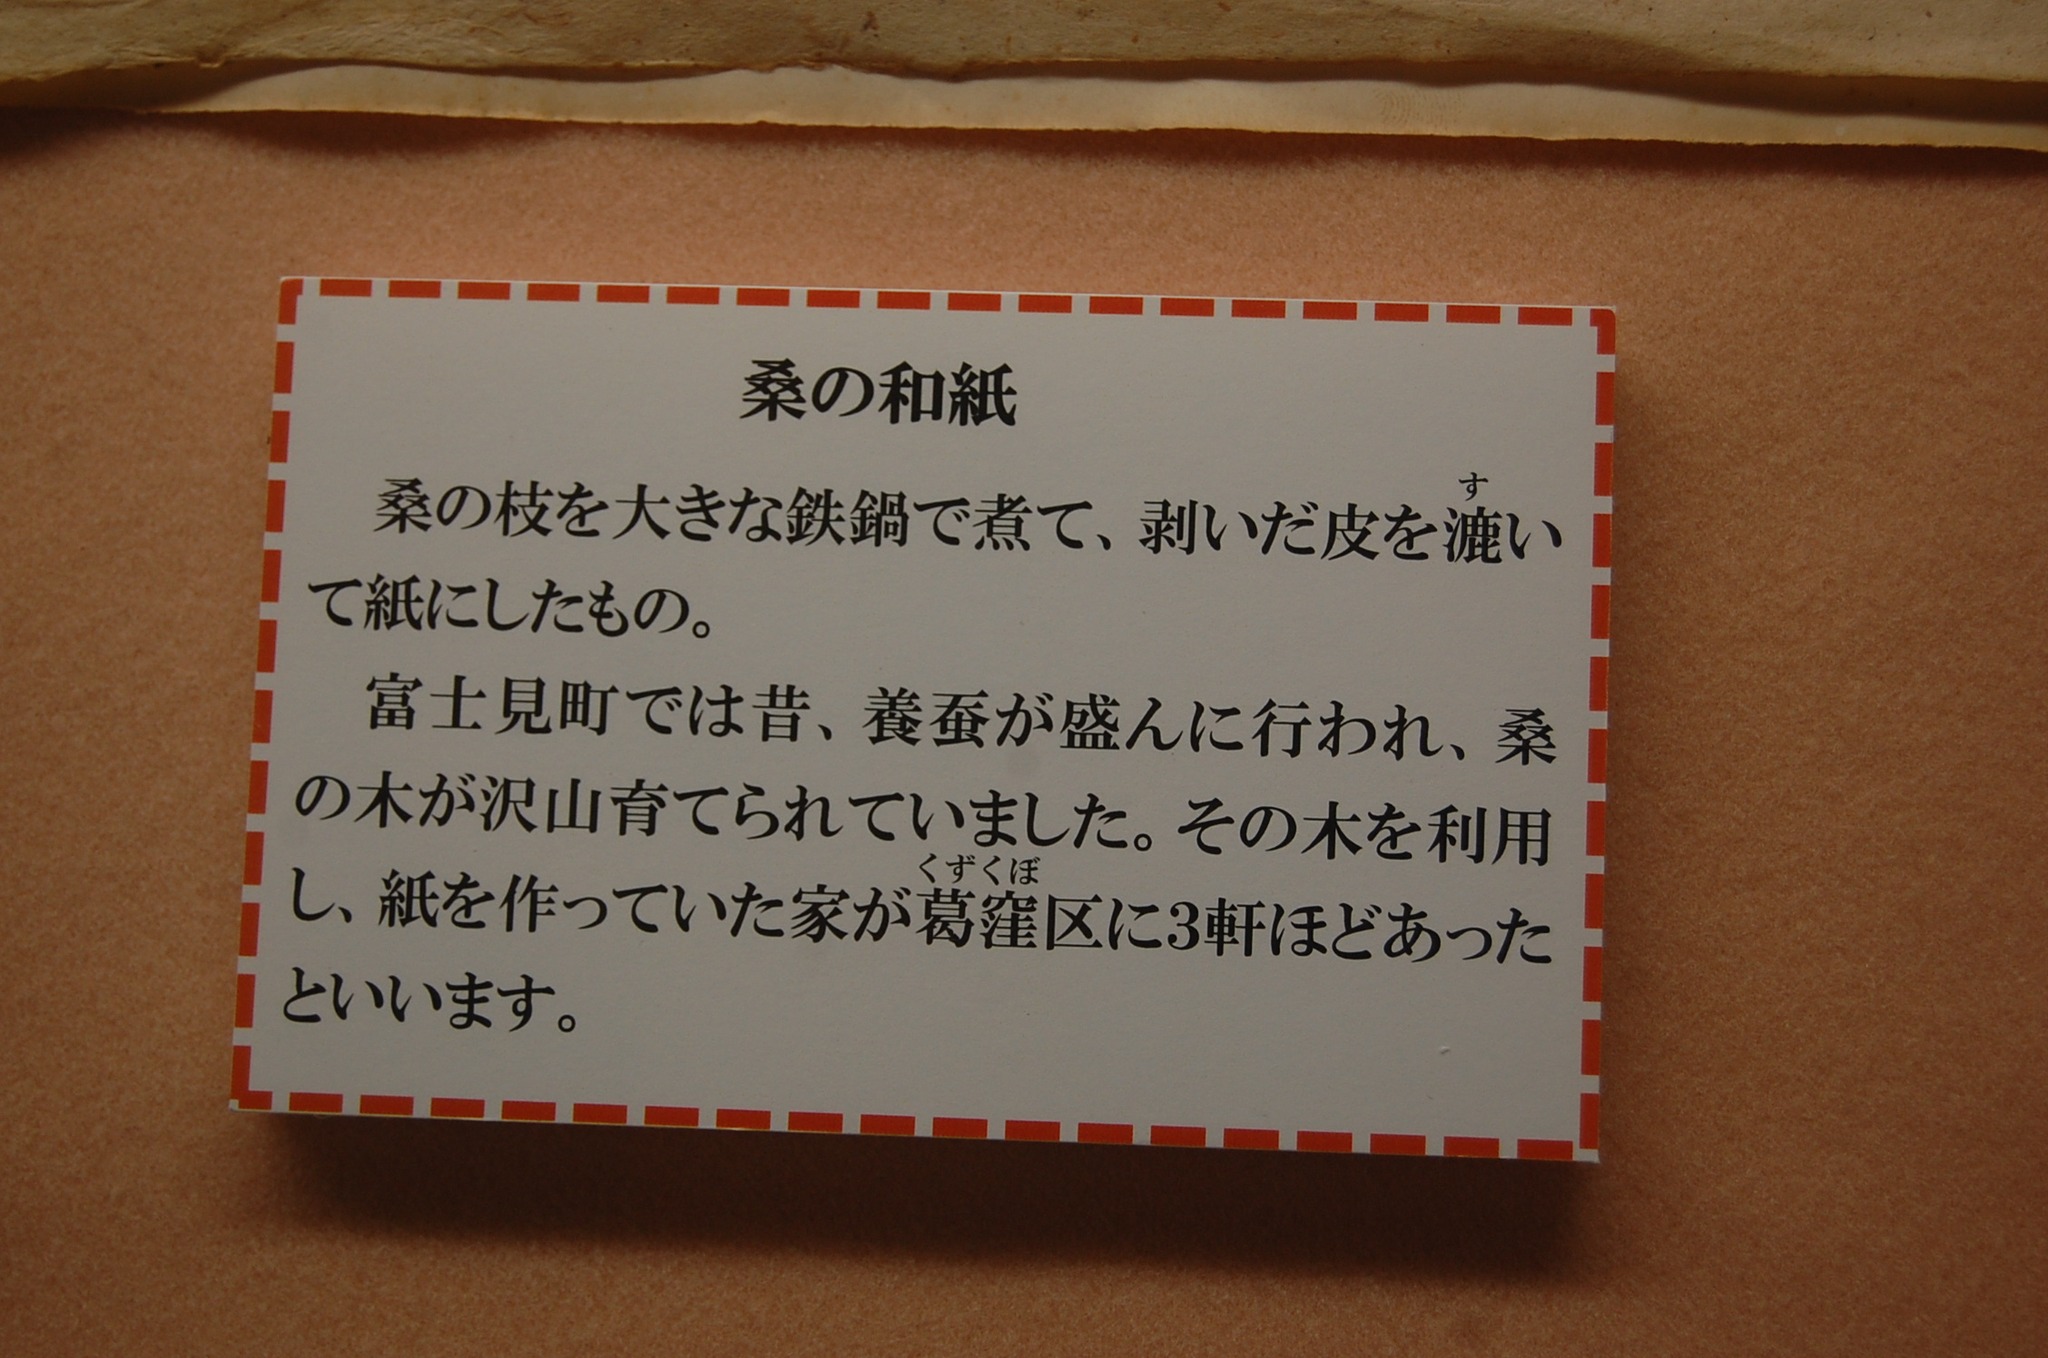 桑の和紙
す
桑の枝を大きな鉄鍋で煮て、剥いだ皮を漉い
て紙にしたもの。
富士見町では昔、養蚕が盛んに行われ、桑
の木が沢山育てられていました。その木を利用
くずくぼ
し、紙を作っていた家が葛窪区に3軒ほどあった
といいます。